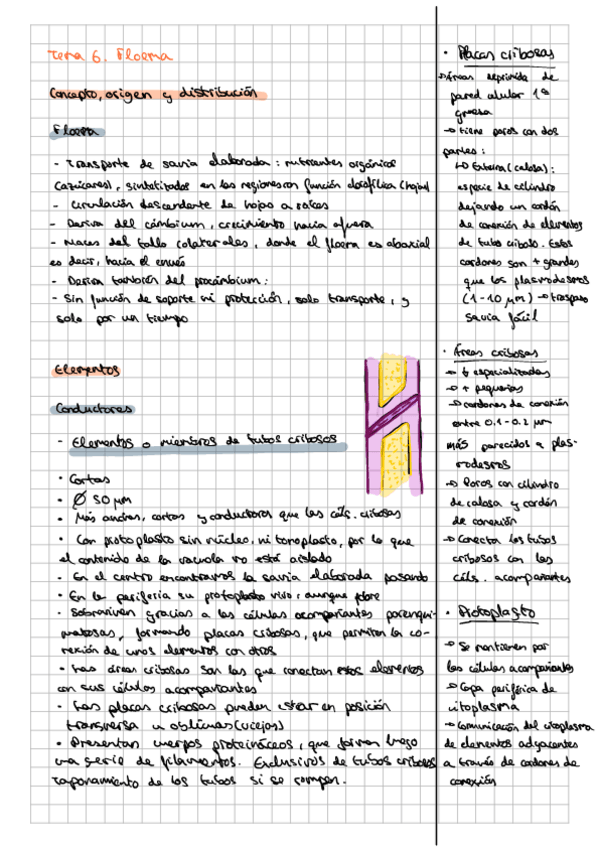 Tema 6. Floema
Concepto, origen y distribución
Floema
- Transporte de savia elaborada: nutrientes orgánicos
(azúcares), sintetizados en las regiones con función clorofílica (hojas)
- Circulación descendente de hojas a raíces
- Deriva del cámbium, crecimiento hacia afuera
- Haces del tallo colaterales, donde el floema es abaxial
es decir, hacia el envés
- Deriva también del procámbium:
- Sin función de soporte ni protección, solo transporte, y
solo por un tiempo
Elementos
Conductores
- Elementos o miembros de tubos cribosos
· Cortos
· Ø 50 μm
· Más anchos, cortos y conductores que las céls. cribosas
· Con protoplasto sin núcleo, ni tonoplasto, por lo que
el contenido de la vacuola no está aislado
· En el centro encontramos la savia elaborada pasando
· En la periferia su protoplasto vivo, aunque pobre
· Sobreviven gracias a las células acompañantes parenqui-
matosas, formando placas cribosas, que permiten la co-
nexión de unos elementos con otros
· Las áreas cribosas son las que conectan estos elementos
con sus células acompañantes
· Las placas cribosas pueden estar en posición
transversa u oblicuas
· Presentan cuerpos proteináceos, que forman luego
una serie de filamentos. Exclusivos de tubos cribosos
taponamiento de los tubos si se rompen.
· Placas cribosas
→ Áreas deprimida de
pared celular 1ª
gruesa
→ tiene poros con dos
partes:
↳ Externa (calosa):
especie de cilindro
dejando un cordón
de conexión de elementos
de tubo criboso. Estos
cordones son + grandes
que los plasmodesmos
(1-10 μm) → traspaso
savia fácil
· Áreas cribosas
→ especializadas
→ + pequeñas
→ cordones de conexión
entre 0.1-0.2 μm
más parecidos a plas-
modesmos
→ Poros con cilindro
de calosa y cordón
de conexión
→ Conecta los tubos
cribosos con las
céls. acompañantes
· Protoplasto
→ Se mantienen por
las células acompañantes
→ Capa periférica de
citoplasma
→ Comunicación del citoplasma
de elementos adyacentes
a través de cordones de
conexión